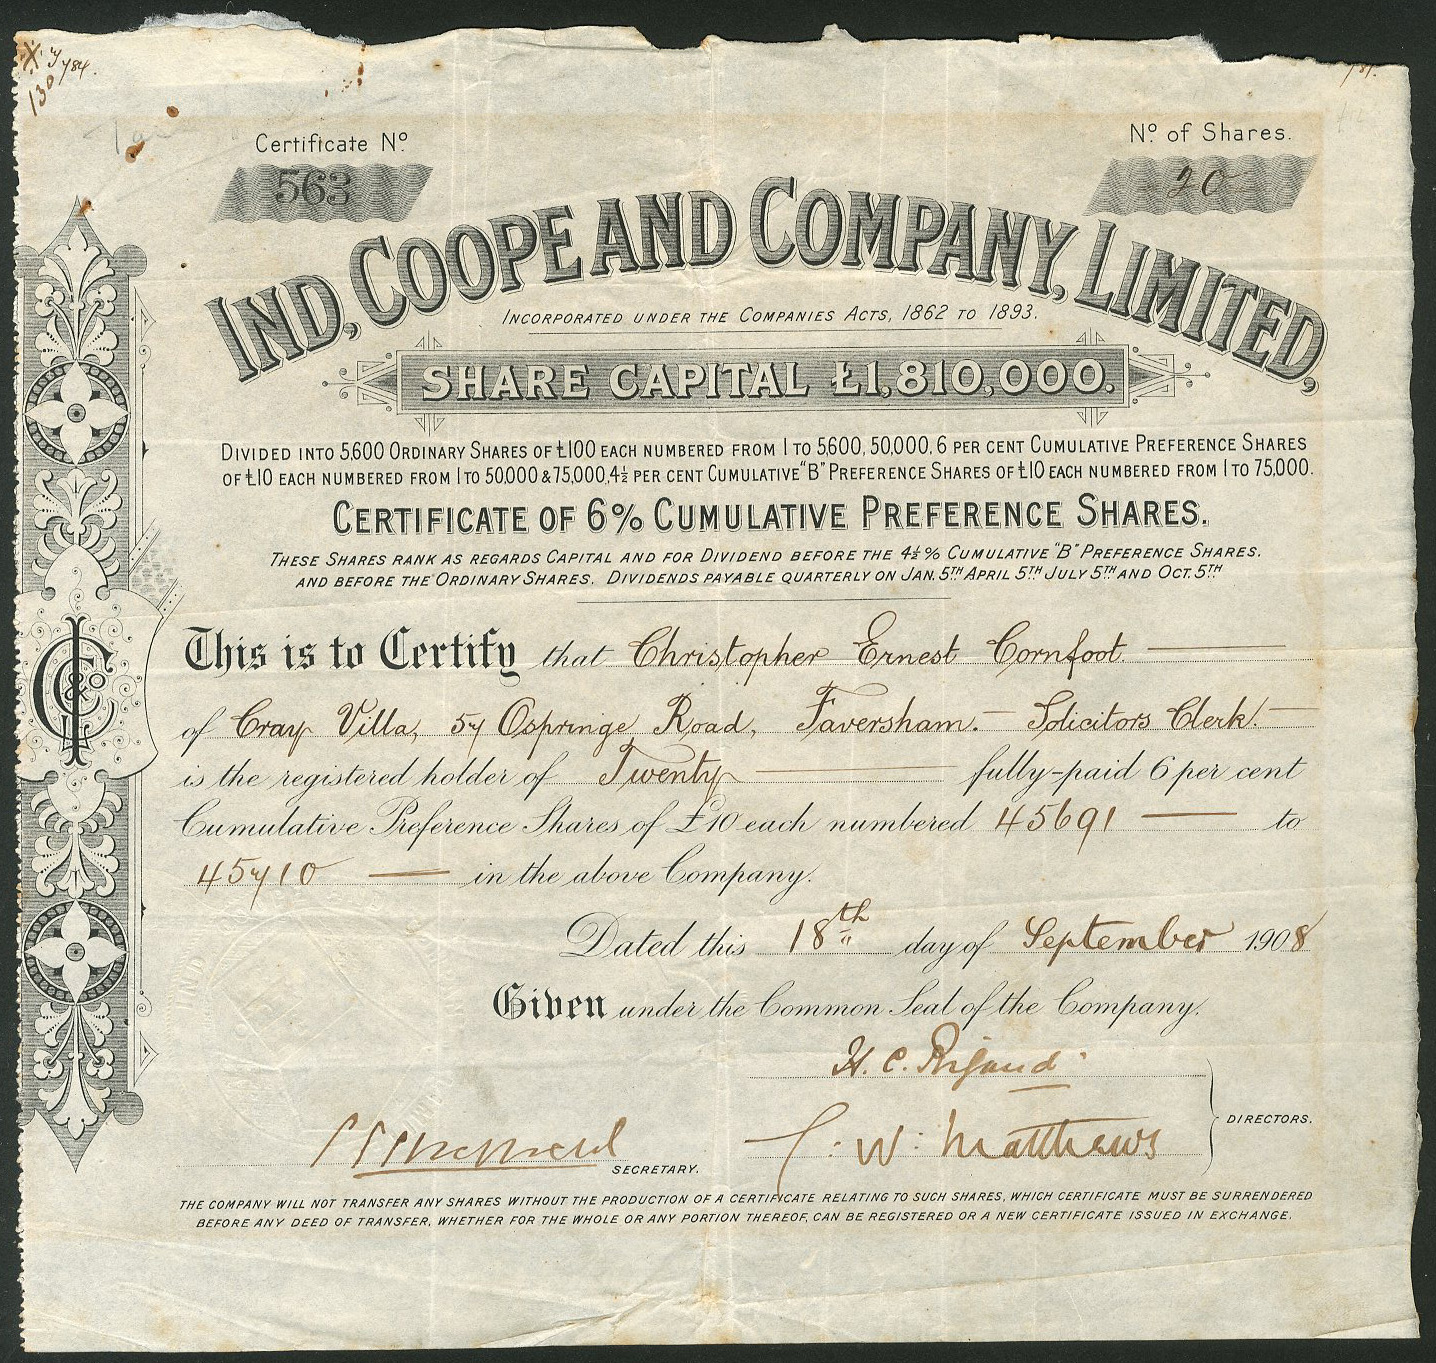 X y 784.
130
Certificate Nº
Nº of Shares.
563
20
IND, COOPE AND COMPANY, LIMITED,
INCORPORATED UNDER THE COMPANIES ACTS, 1862 TO 1893.
SHARE CAPITAL £1,810,000.
DIVIDED INTO 5,600 ORDINARY SHARES OF £100 EACH NUMBERED FROM 1 TO 5600, 50,000, 6 PER CENT CUMULATIVE PREFERENCE SHARES
OF £10 EACH NUMBERED FROM 1 TO 50,000 & 75,000, 4½ PER CENT CUMULATIVE "B" PREFERENCE SHARES OF £10 EACH NUMBERED FROM 1 TO 75,000.
CERTIFICATE OF 6% CUMULATIVE PREFERENCE SHARES.
THESE SHARES RANK AS REGARDS CAPITAL AND FOR DIVIDEND BEFORE THE 4½% CUMULATIVE "B" PREFERENCE SHARES,
AND BEFORE THE ORDINARY SHARES. DIVIDENDS PAYABLE QUARTERLY ON JAN. 5TH APRIL 5TH JULY 5TH AND OCT. 5TH
This is to Certify that Christopher Ernest Cornfoot.
of Cray Villa, 57 Ospringe Road, Faversham. — Solicitors Clerk. —
is the registered holder of Twenty — fully-paid 6 per cent
Cumulative Preference Shares of £10 each numbered 45691 — to
45710 — in the above Company.
Dated this 18th day of September 1908
Given under the Common Seal of the Company.
H. C. Rigaud
C. W. Matthews
DIRECTORS.
SECRETARY.
THE COMPANY WILL NOT TRANSFER ANY SHARES WITHOUT THE PRODUCTION OF A CERTIFICATE RELATING TO SUCH SHARES, WHICH CERTIFICATE MUST BE SURRENDERED
BEFORE ANY DEED OF TRANSFER, WHETHER FOR THE WHOLE OR ANY PORTION THEREOF, CAN BE REGISTERED OR A NEW CERTIFICATE ISSUED IN EXCHANGE.